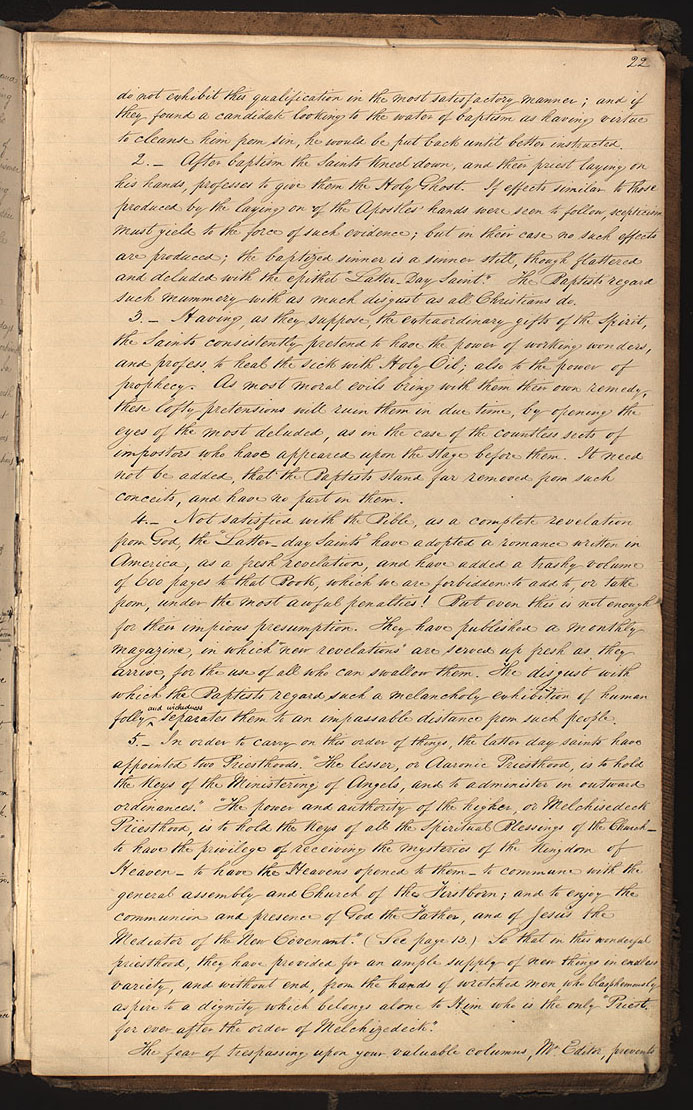 22
do not exhibit this qualification in the most satisfactory manner; and if
they found a candidate looking to the water of baptism as having virtue
to cleanse him from sin, he would be put back until better instructed.
2. – After baptism the Saints kneel down, and their priest laying on
his hands, professes to give them the Holy Ghost. If effects similar to those
produced by the laying on of the Apostles' hands were seen to follow scepticism
must yield to the force of such evidence; but in their case no such effects
are produced; the baptized sinner is a sinner still, though flattered
and deluded with the epithet "Latter-Day Saint." The Baptists regard
such mummery with as much disgust as all Christians do.
3. – Having, as they suppose, the extraordinary gifts of the Spirit,
the Saints consistently pretend to have the power of working wonders,
and profess to heal the sick with Holy Oil; also to the power of
prophecy. As most moral evils bring with them their own remedy,
these lofty pretensions will ruin them in due time, by opening the
eyes of the most deluded, as in the case of the countless sects of
impostors who have appeared upon the stage before them. It need
not be added, that the Baptists stand far removed from such
conceits, and have no part in them.
4. – Not satisfied with the Bible, as a complete revelation
from God, the "Latter-day Saints" have adopted a romance written in
America, as a fresh revelation, and have added a trashy volume
of 600 pages to that Book, which we are forbidden to add to, or take
from, under the most awful penalties! But even this is not enough
for their impious presumption. They have published a monthly
magazine, in which "new revelations" are served up fresh as they
arrive, for the use of all who can swallow them. The disgust with
which the Baptists regard such a melancholy exhibition of human
folly and wickedness separates them to an impassable distance from such people.
5. – In order to carry on this order of things, the latter day saints have
appointed two Priesthoods. "The lesser, or Aaronic Priesthood, is to hold
the Keys of the Ministering of Angels, and to administer in outward
ordinances." "The power and authority of the higher, or Melchisedeck
Priesthood, is to hold the Keys of all the Spiritual Blessings of the Church –
to have the privilege of receiving the mysteries of the kingdom of
Heaven – to have the Heavens opened to them – to commune with the
general assembly and Church of the Firstborn; and to enjoy the
communion and presence of God the Father, and of Jesus the
Mediator of the New Covenant." (See page 13.) So that in this wonderful
priesthood, they have provided for an ample supply of new things in endless
variety, and without end, from the hands of wretched men who blasphemously
aspire to a dignity which belongs alone to Him who is the only "Priest
for ever after the order of Melchizedeck."
The fear of trespassing upon your valuable columns, Mr Editor, prevents